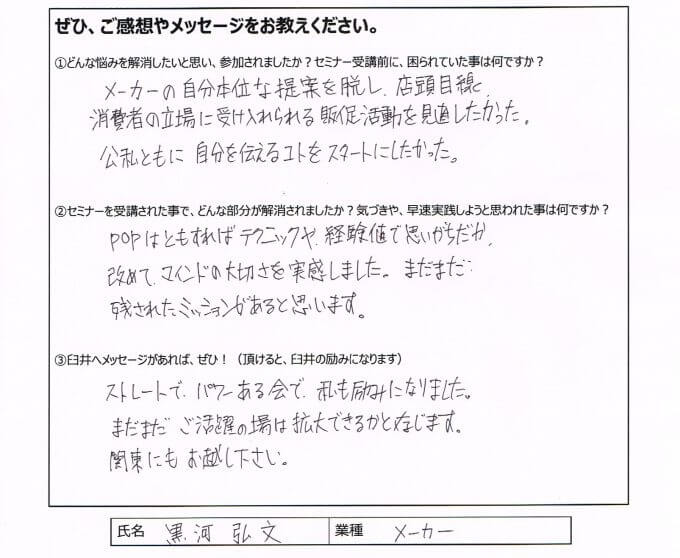 ぜひ、ご感想やメッセージをお教えください。
①どんな悩みを解消したいと思い、参加されましたか？セミナー受講前に、困られていた事は何ですか？
メーカーの自分本位な提案を脱し、店頭目線で
消費者の立場に受け入れられる販促活動を見直したかった。
公私ともに自分を伝えるコトをスタートにしたかった。
②セミナーを受講された事で、どんな部分が解消されましたか？気づきや、早速実践しようと思われた事は何ですか？
POPはともすればテクニックや、経験値で思いがちだが、
改めて、マインドの大切さを実感しました。まだまだ
残されたミッションがあると思います。
③臼井へメッセージがあれば、ぜひ！（頂けると、臼井の励みになります）
ストレートで、パワーある会で、私も励みになりました。
まだまだ ご活躍の場は拡大できるかと存じます。
関東にもお越し下さい。
氏名 黒河 弘文 業種 メーカー